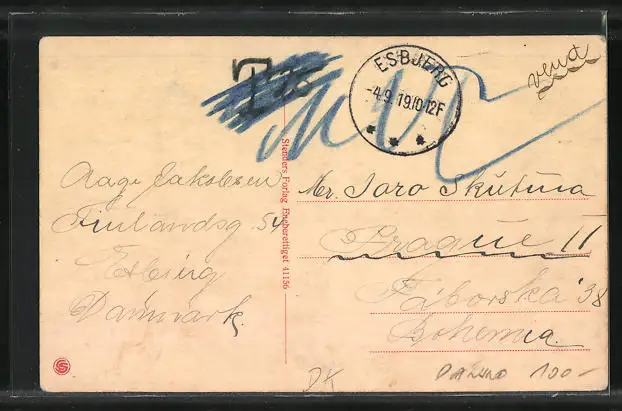 T
ESBJERG
-4.9.19.10-12F
vend
Aage Jakobsen
Finlandsg 54
Esbjerg
Danmark.
Stenders Forlag Eneberettiget 41156
Mr. Jaro Skutina
Prague II
Táborska 38
Bohemia.
DK
100-